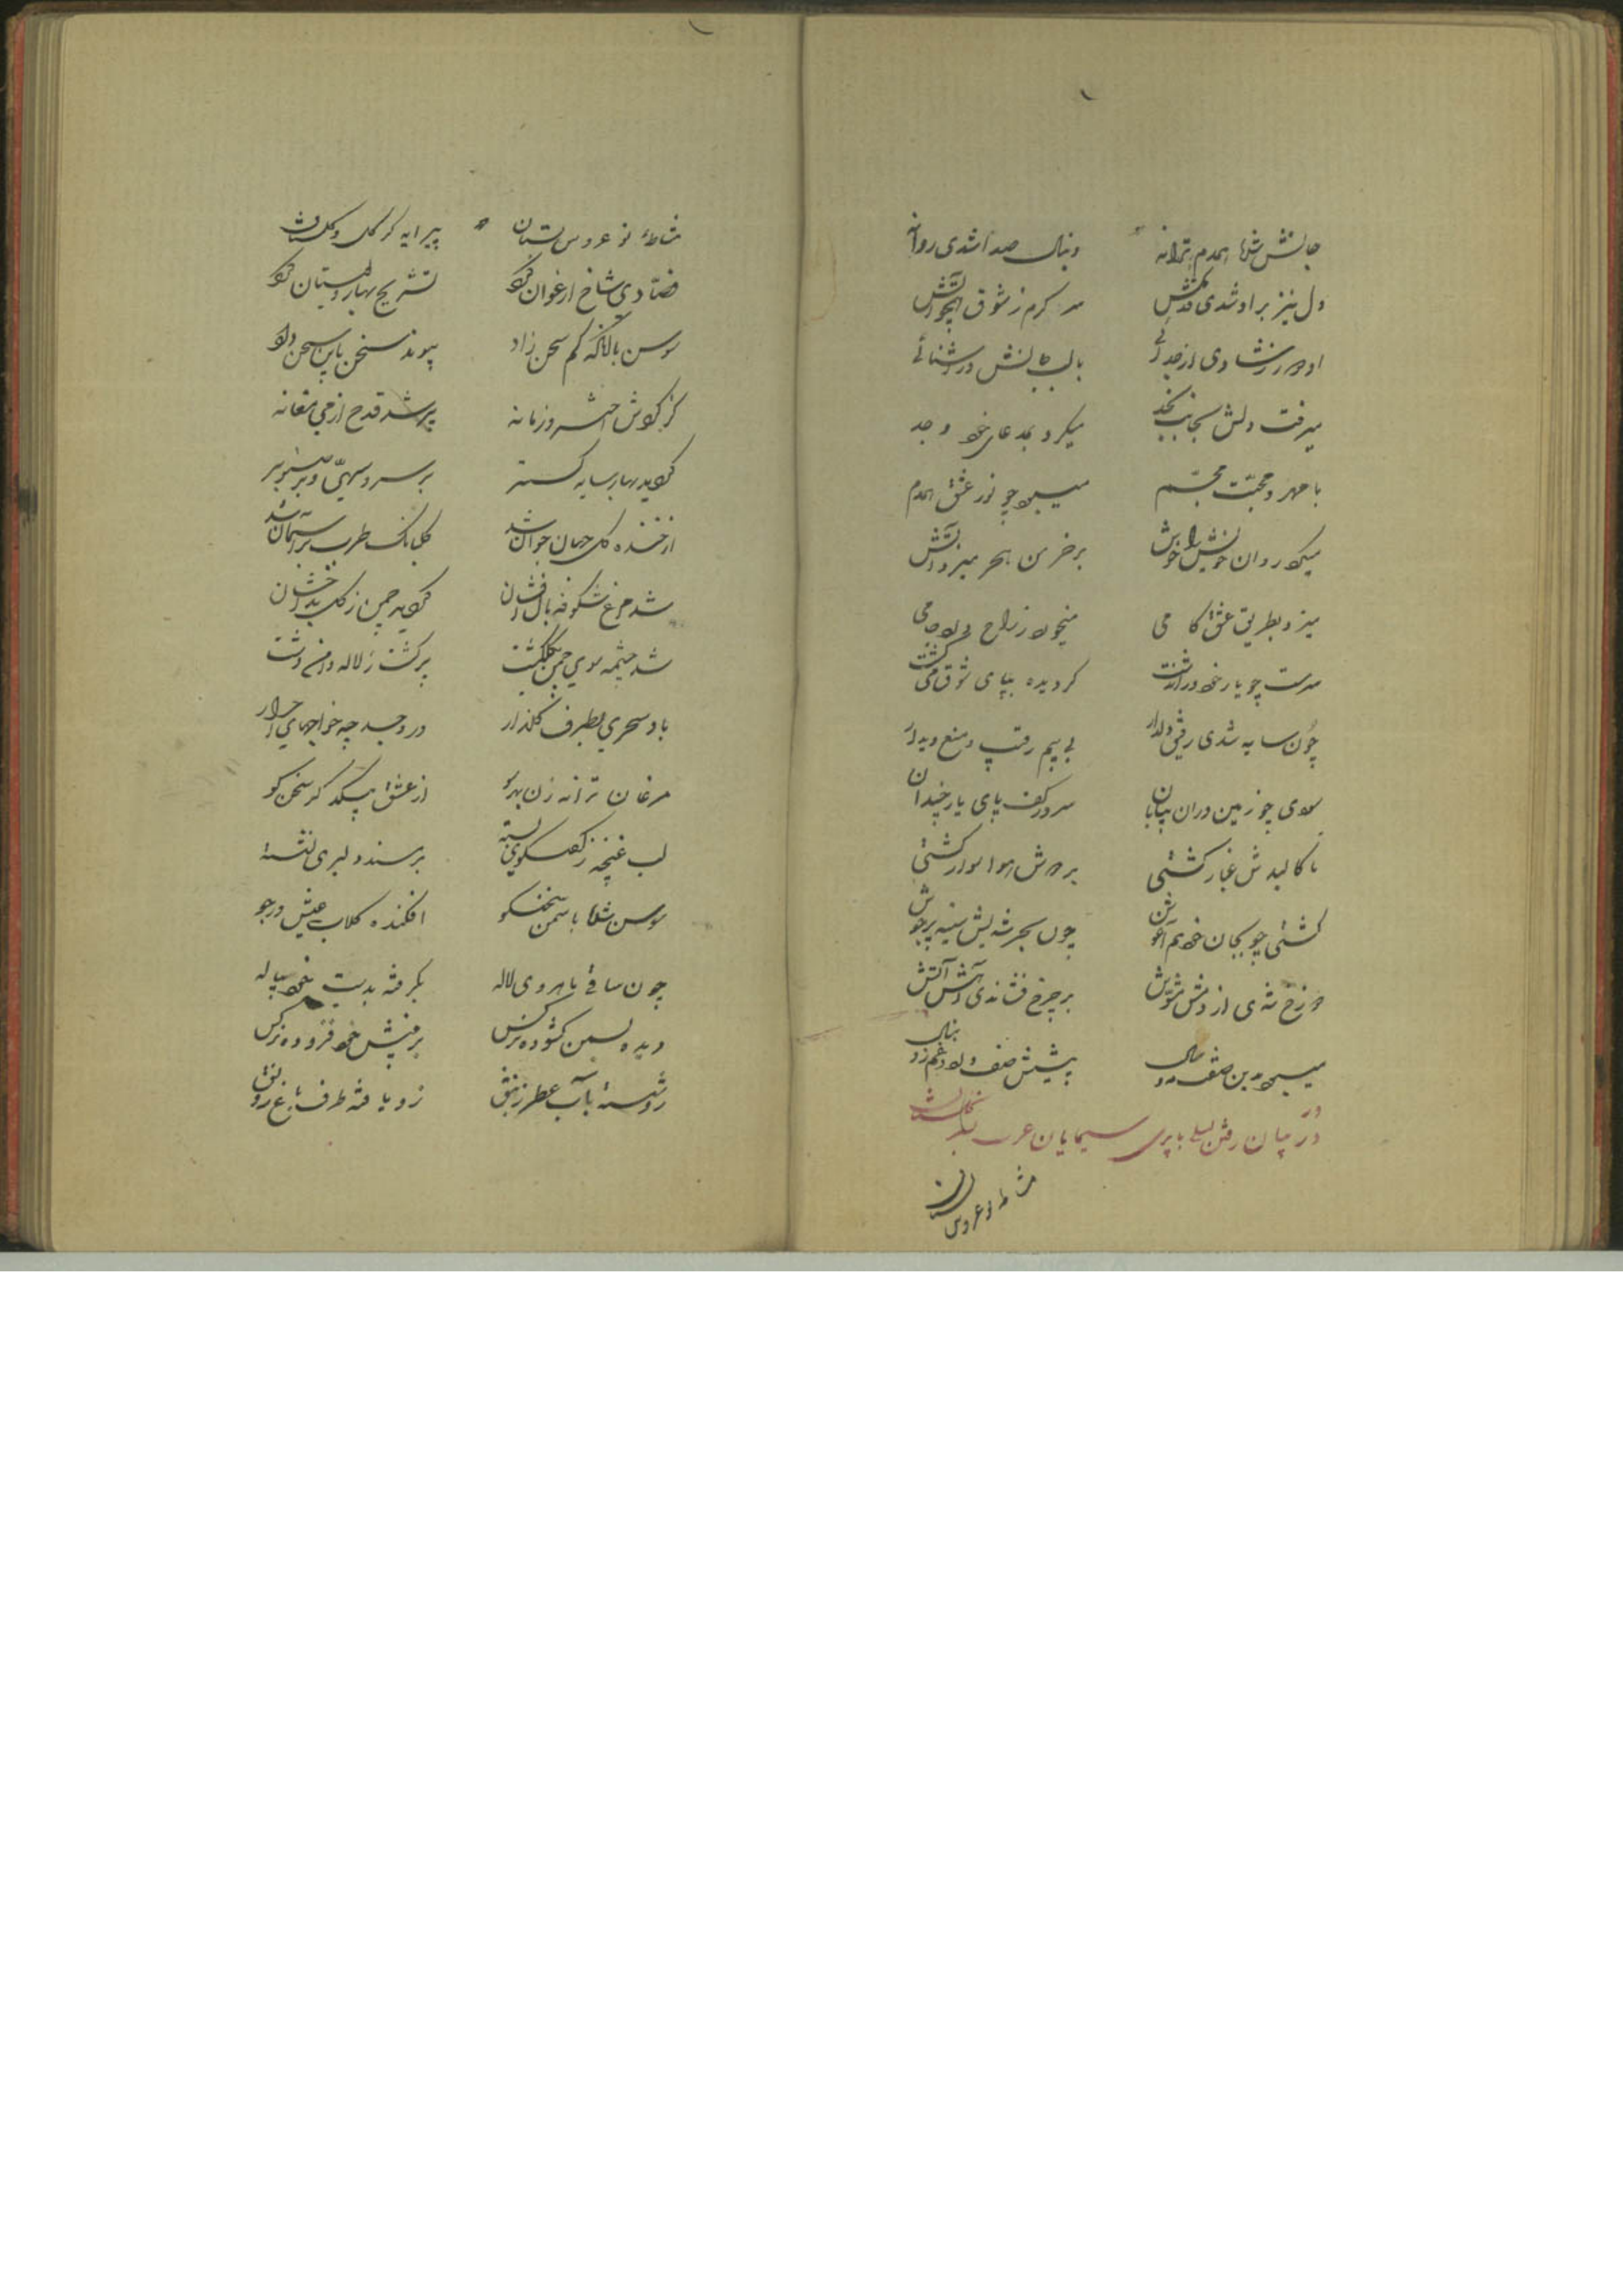 جانش شده همدم ترانه دنبال صدا شدی روانه
دل نیز بر او شدی سر گرم ز شوق همچو آتش
او در ز شادی از جدائی با لب در آشنائی
میرفت دلش بجانب نجد میکرد بمدعای خود وجد
با مهر و محبّت مجسّم میسوخ چو نور عشق همدم
میکرد روان خویش را خوش بر خرمن هجر میزد آتش
میزد بطریق عشق کامی میخورد ز راح جامی
سرمست چو یار خود در آن دشت گردیده بپای شوق میگشت
چون سایه شدی رفیق دلدار بی بیم رقیب و منع دیدار
سودی چو زمین دران بیابان سر در کف پای یار چندان
تا کالبدش غبار گشتی بر دوش هوا سوار گشتی
گشتی چو بجان خود هم آغوش چون بحر شدیش سینه پرجوش
دوزخ شدی از دمش مشوّش بر چرخ فشاندی آتش آتش
میسود بدین صفت پیشش صف درد و غم زد
در بیان رفتن لیلی با پری سیمایان عرب بگلستان
مشاطه نو عروس بستان
مشاطهٔ نو عروس بستان پیرایه گر گل و گلستان
فصّاد دی شاخ ارغوان کرد تشریح بهار و بستان کرد
سوسن با آنکه کم سخن زاد پیوند سخن باین سخن داد
کز گردش اختر و زمانه پر شد قدح از می مغانه
گردید بهار سایه گستر بر سرو سهیّ و بر صنوبر
از خنده گل جهان جوان شد گلبانگ طرب بر آسمان شد
شد مرغ شکوفه بال افشان گردید چمن ز گل بدخشان
شد چشمه سوی چمن بگلگشت پر گشت ز لاله دامن دشت
باد سحری بطرف گلزار در وجد چو خواجهای احرار
مرغان ترانه زن بهر سو از عشق بیکدگر سخن گو
لب غنچه ز گفتگوی بسته بر مسند دلبری نشسته
سوسن شده با سمن سخنگو افکنده گلاب عیش در جو
چون ساقی ماهروی لاله بگرفته بدست خود پیاله
دیده بسمن گشوده نرگس بر بینش خود فزوده نرگس
رو شسته بآب عطر زنبق زو یافته طرف باغ رونق